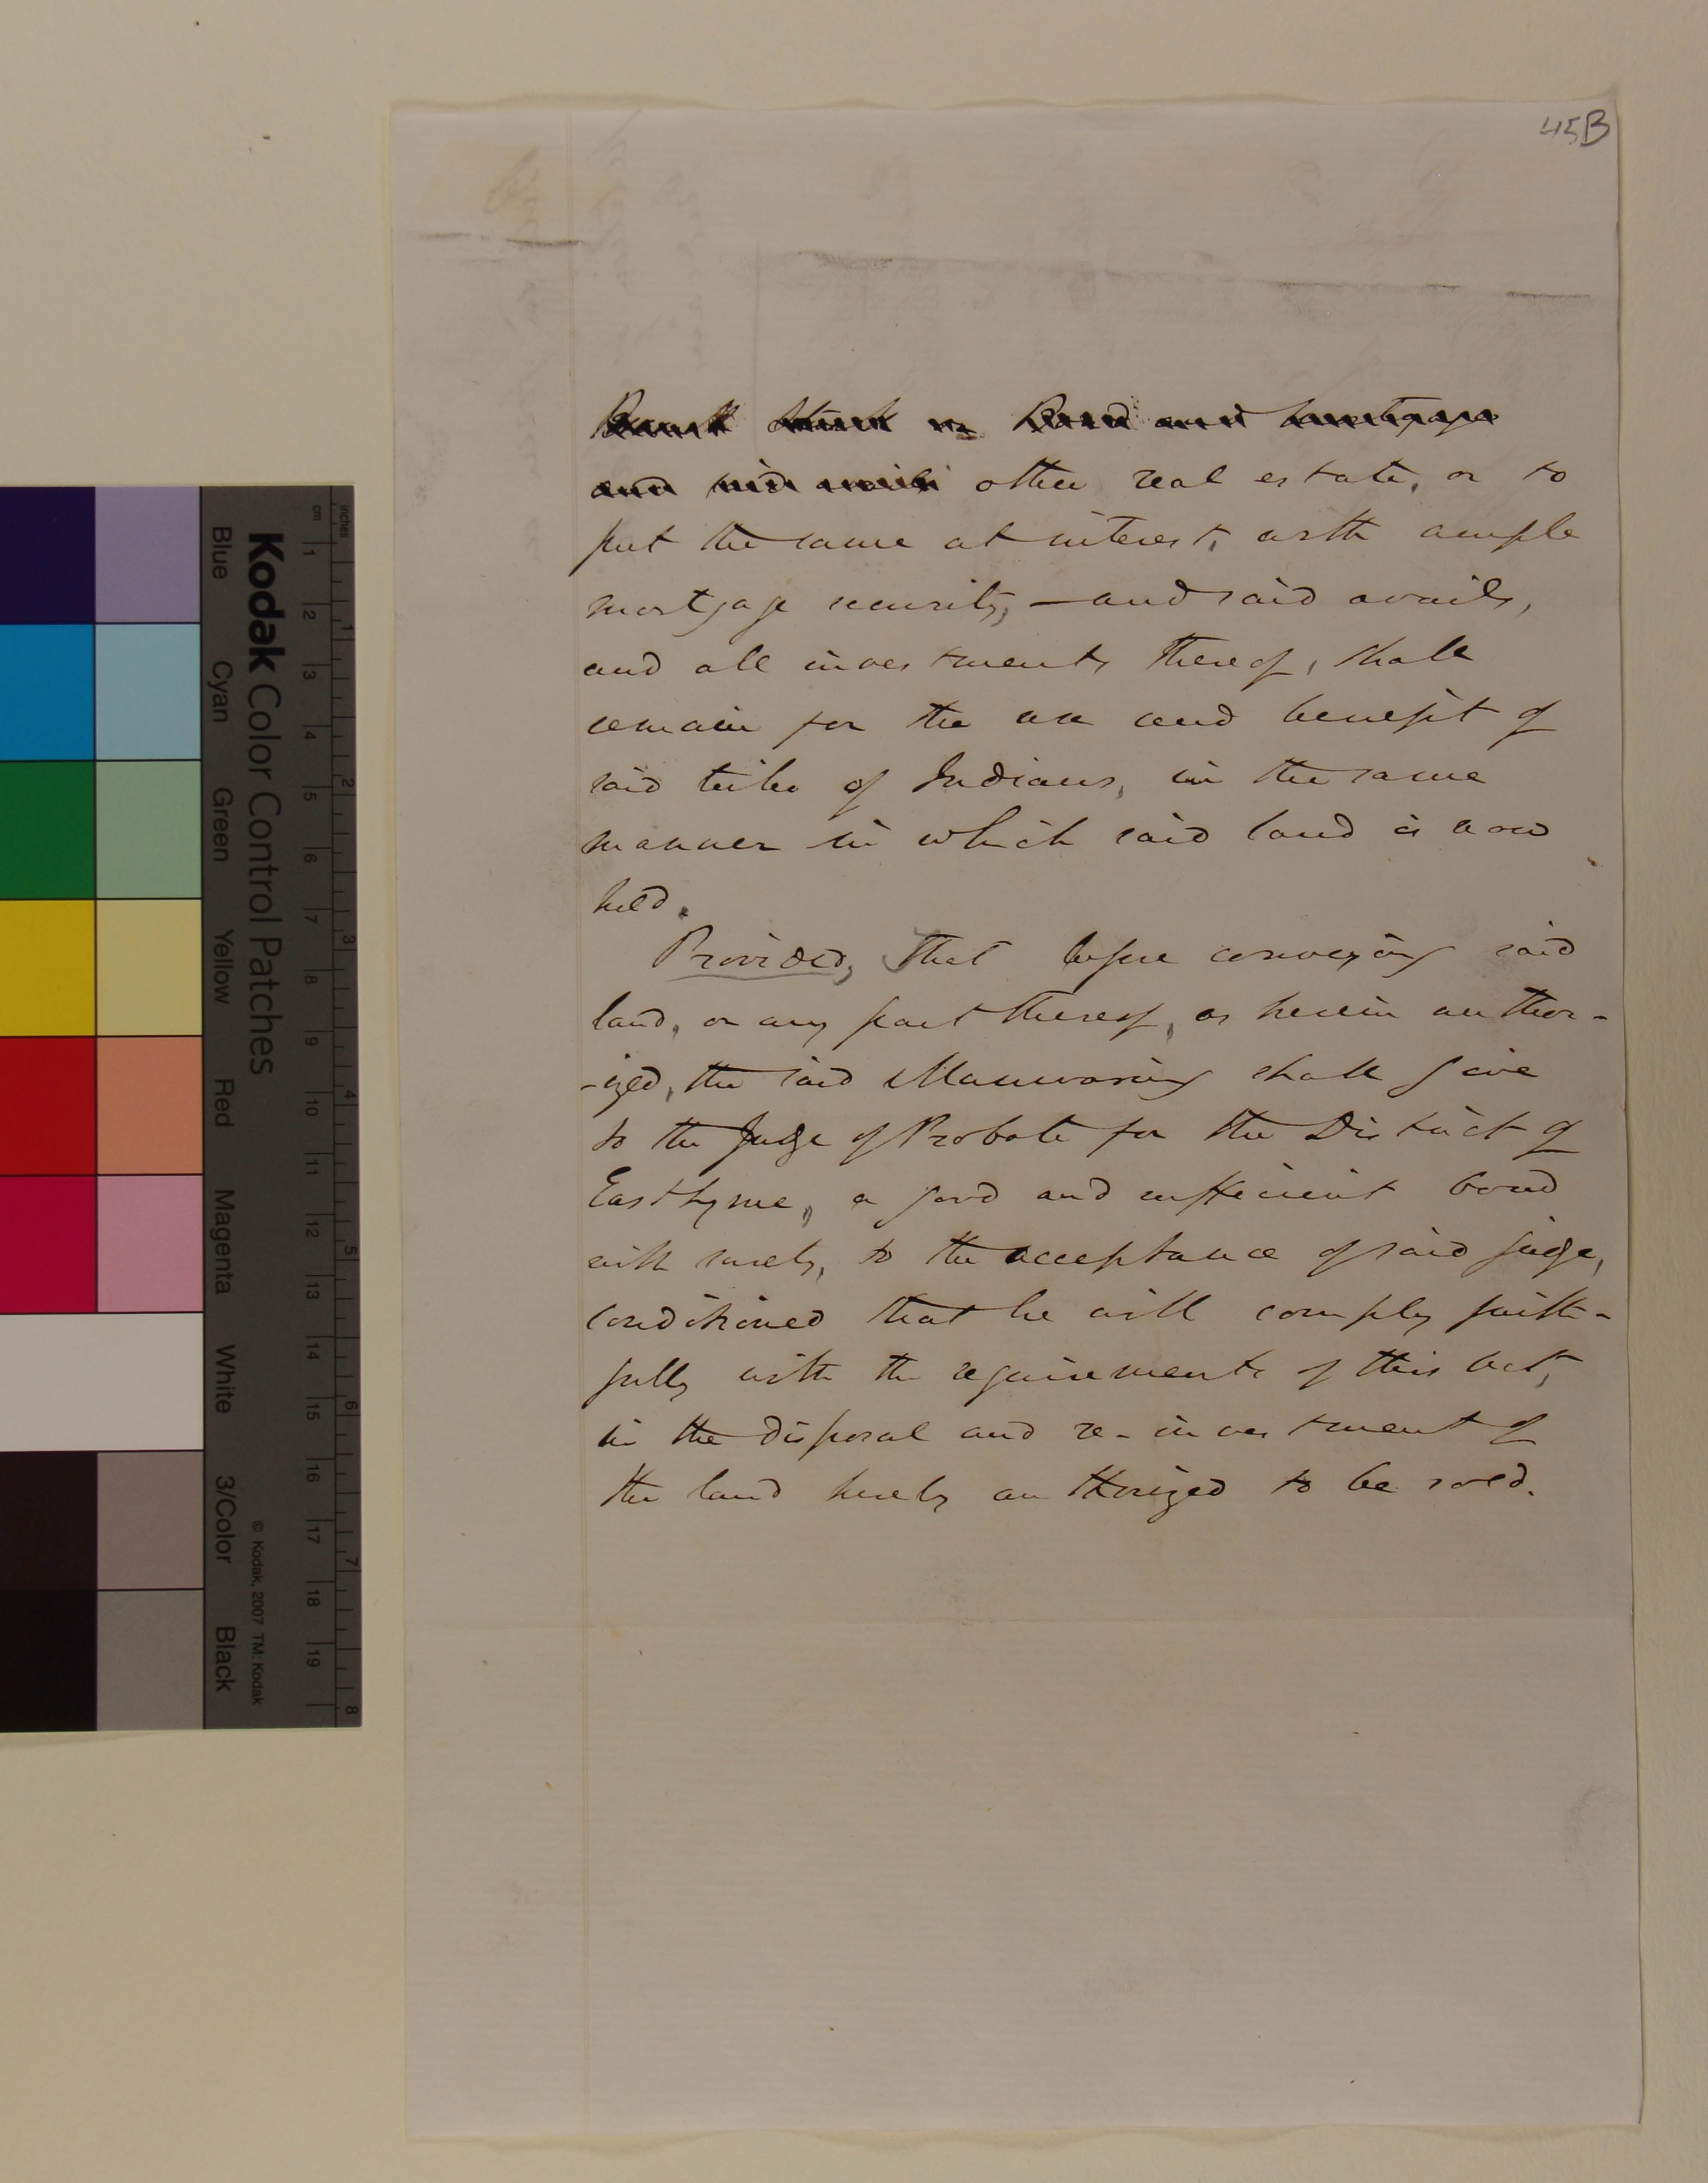 45B
Bank Stock or Bond and mortgage
and said avails other real estate, or to
put the same at interest, with ample
mortgage security, — and said avails,
and all investments thereof, shall
remain for the use and benefit of
said tribe of Indians, in the same
manner in which said land is now
held.
Provided, That before conveying said
land, or any part thereof, as herein author-
-ized, the said Manwaring shall give
to the Judge of Probate for the District of
East Lyme, a good and sufficient bond
with surety, to the acceptance of said judge,
conditioned that he will comply faith-
fully with the requirements of this act,
in the disposal and re-investment of
the land hereby authorized to be sold.
Kodak Color Control Patches
Blue Cyan Green Yellow Red Magenta White 3/Color Black
© Kodak, 2007 TM: Kodak
inches 1 2 3 4 5 6 7 8
cm 1 2 3 4 5 6 7 8 9 10 11 12 13 14 15 16 17 18 19